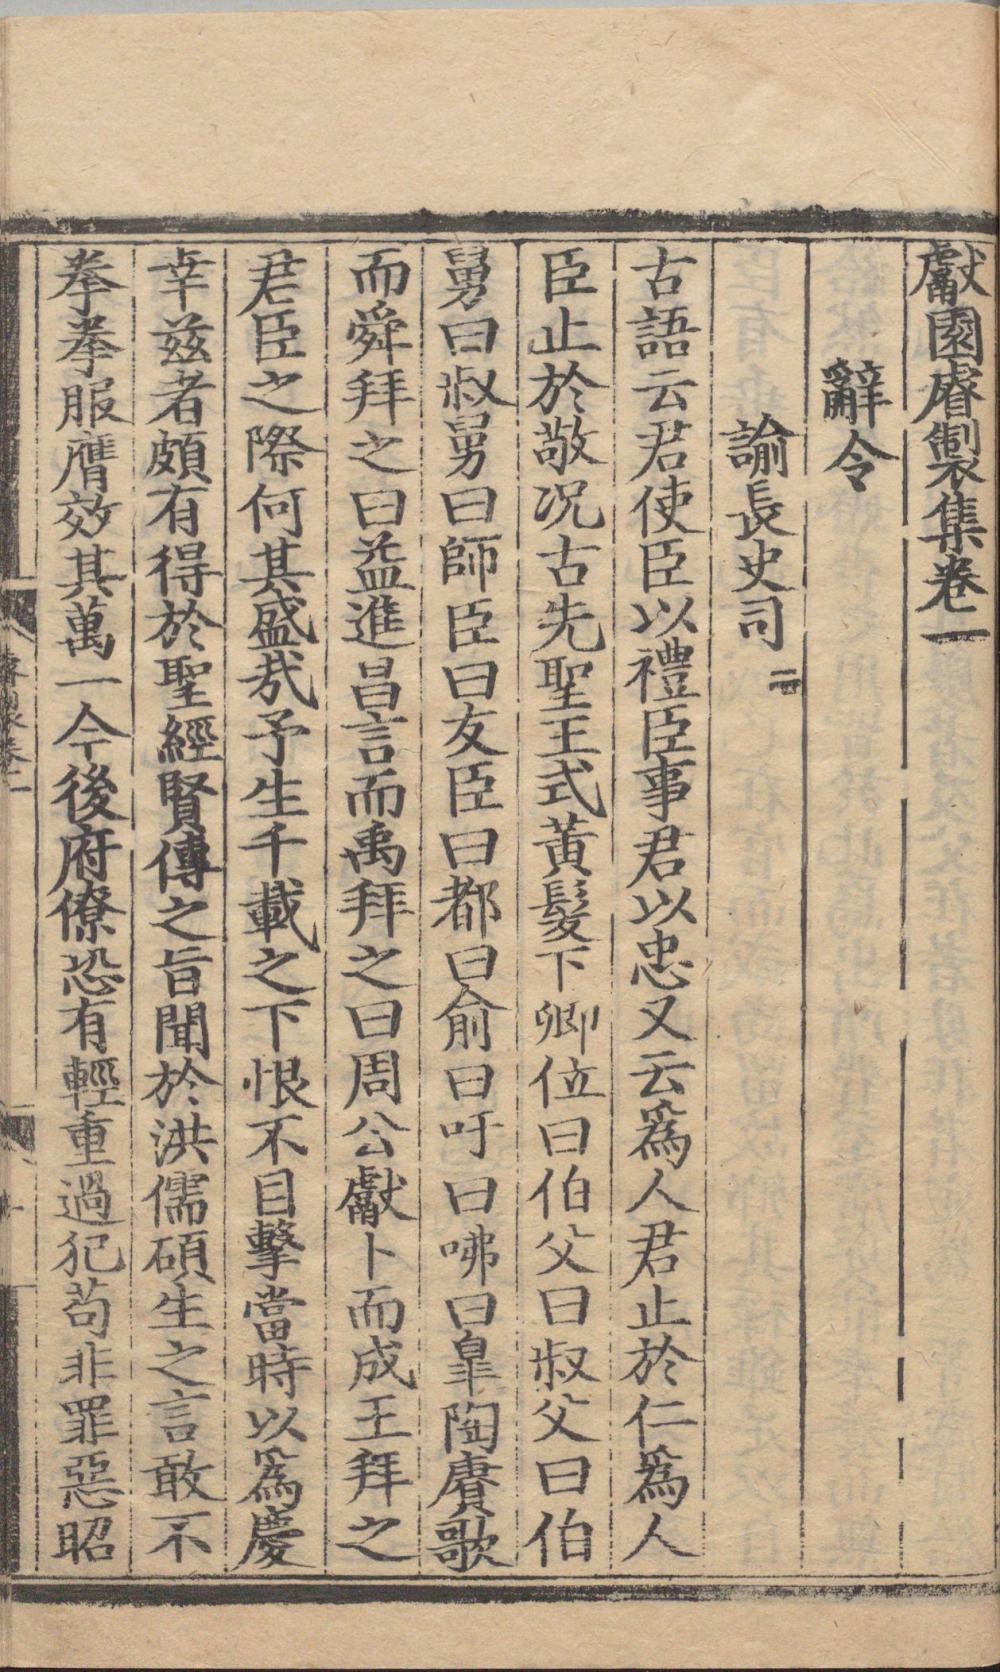 獻園睿製集卷一
辭令
諭長史司 二首
古語云君使臣以禮臣事君以忠又云爲人君止於仁爲人
臣止於敬况古先聖王式黃髮下卿位曰伯父曰叔父曰伯
舅曰叔舅曰師臣曰友臣曰都曰俞曰吁曰咈曰臯陶賡歌
而舜拜之曰益進昌言而禹拜之曰周公獻卜而成王拜之
君臣之際何其盛㢤予生千載之下恨不目擊當時以爲慶
幸茲者頗有得於聖經賢傳之旨聞於洪儒碩生之言敢不
拳拳服膺效其萬一今後府僚恐有輕重過犯苟非罪惡昭
睿製卷一